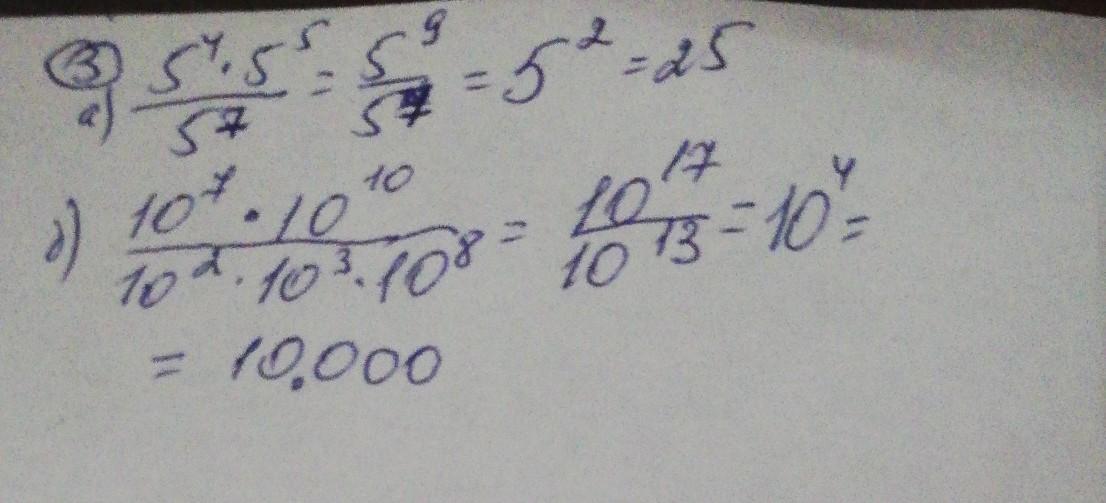 ③ 5⁴·5⁵/5⁷ = 5⁹/5⁷ = 5² = 25
а)
б) 10⁷·10¹⁰/10²·10³·10⁸ = 10¹⁷/10¹³ = 10⁴ =
= 10.000